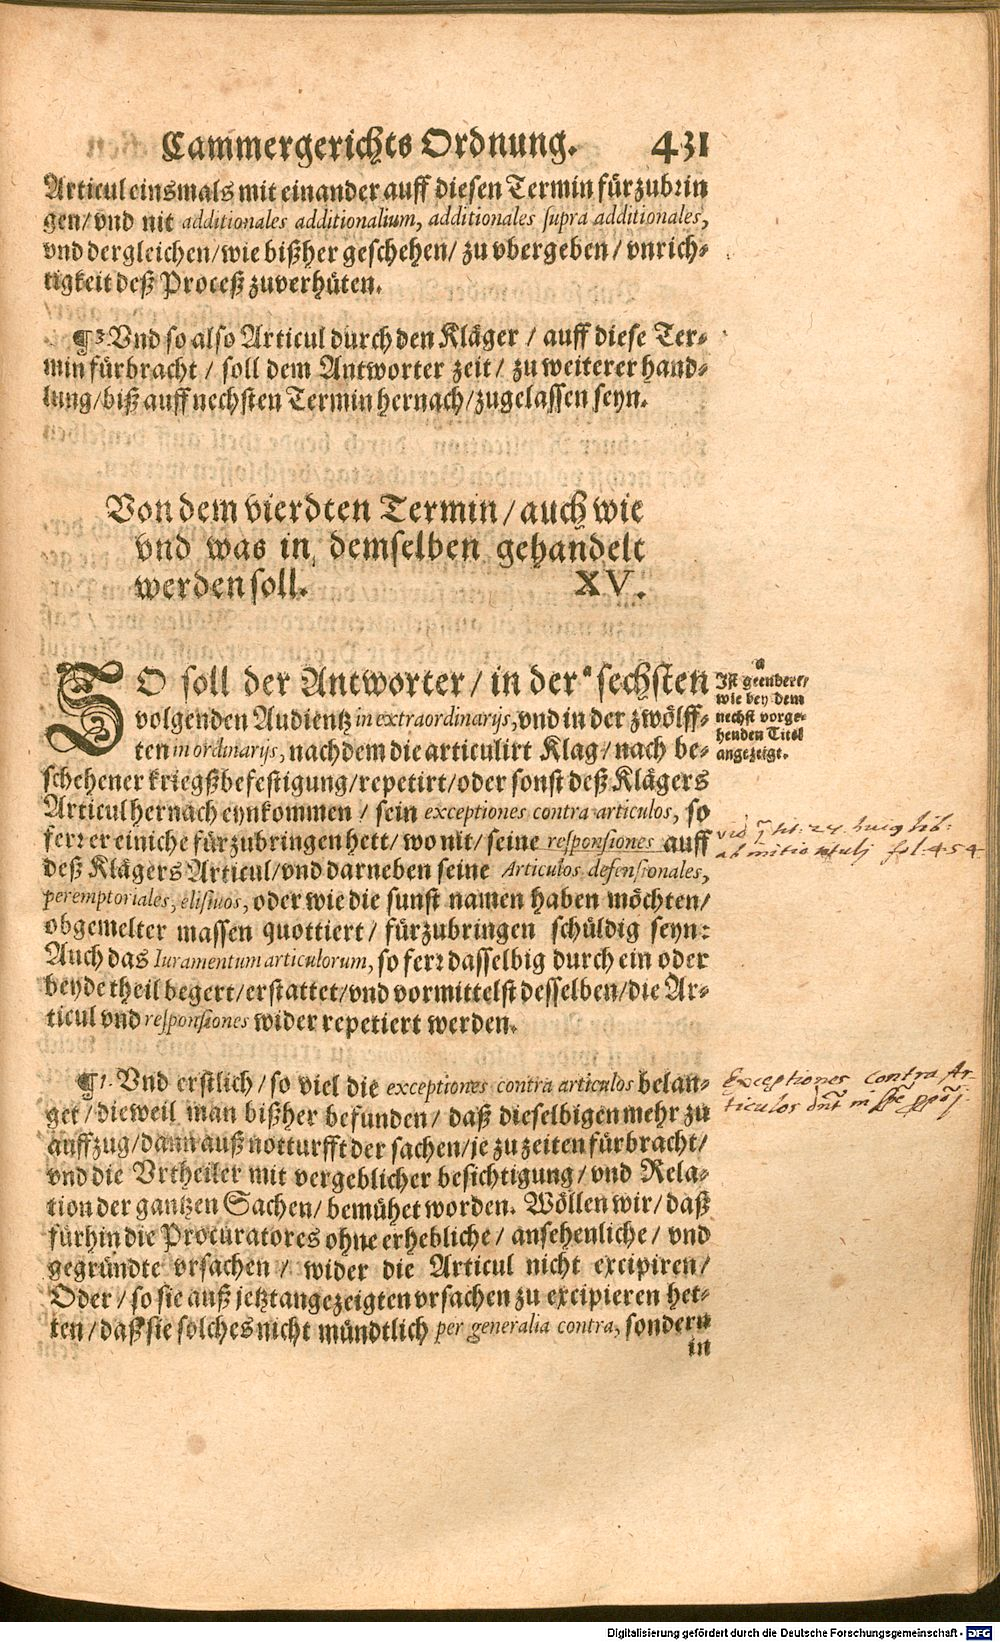 Cammergerichts Ordnung. 431
Articul einsmals mit einander auff diesen Termin fürzubrin
gen/ vnd nit additionales additionalium, additionales supra additionales,
vnd dergleichen/ wie bißher geschehen/ zu vbergeben/ vnrich-
tigkeit deß Proceß zuverhüten.
¶ 3. Vnd so also Articul durch den Kläger / auff diese Ter-
min fürbracht / soll dem Antworter zeit / zu weiterer hand-
lung/ biß auff nechsten Termin hernach/ zugelassen seyn.
Von dem vierdten Termin / auch wie
vnd was in demselben gehandelt
werden soll. XV.
SO soll der Antworter / in der a sechsten
volgenden Audientz in extraordinarijs, vnd in der zwölff-
ten in ordinarijs, nach dem die articulirt Klag/ nach be-
schehener kriegßbefestigung/ repetirt/ oder sonst deß Klägers
Articul hernach eynkommen / sein exceptiones contra articulos, so
ferr er einiche fürzubringen hett/ wo nit/ seine responsiones auff
deß Klägers Articul/ vnd darneben seine Articulos defensionales,
peremptoriales, elisiuos, oder wie die sunst namen haben möchten/
obgemelter massen quottiert/ fürzubringen schüldig seyn:
Auch das Iuramentum articulorum, so ferr dasselbig durch ein oder
beyde theil begert/ erstattet/ vnd vormittelst desselben/ die Ar-
ticul vnd responsiones wider repetiert werden.
a
Ist geendert/
wie bey dem
nechst vorge-
henden Titel
angezeigt.
vid tit: 24 huig lib:
ab initio fol. 454
¶ 1. Vnd erstlich/ so viel die exceptiones contra articulos belan-
get / dieweil man bißher befunden / daß dieselbigen mehr zu
auffzug/ dann auß notturfft der sachen/ je zu zeiten fürbracht/
vnd die Vrtheiler mit vergeblicher besichtigung/ vnd Rela-
tion der gantzen Sachen/ bemühet worden. Wöllen wir/ daß
fürhin die Procuratores ohne erhebliche / ansehenliche / vnd
gegründte vrsachen / wider die Articul nicht excipiren/
Oder / so sie auß jetztangezeigten vrsachen zu excipieren het-
ten / daß sie solches nicht mündtlich per generalia contra, sondern
in
Exceptiones contra Ar-
ticulos
Digitalisierung gefördert durch die Deutsche Forschungsgemeinschaft - DFG